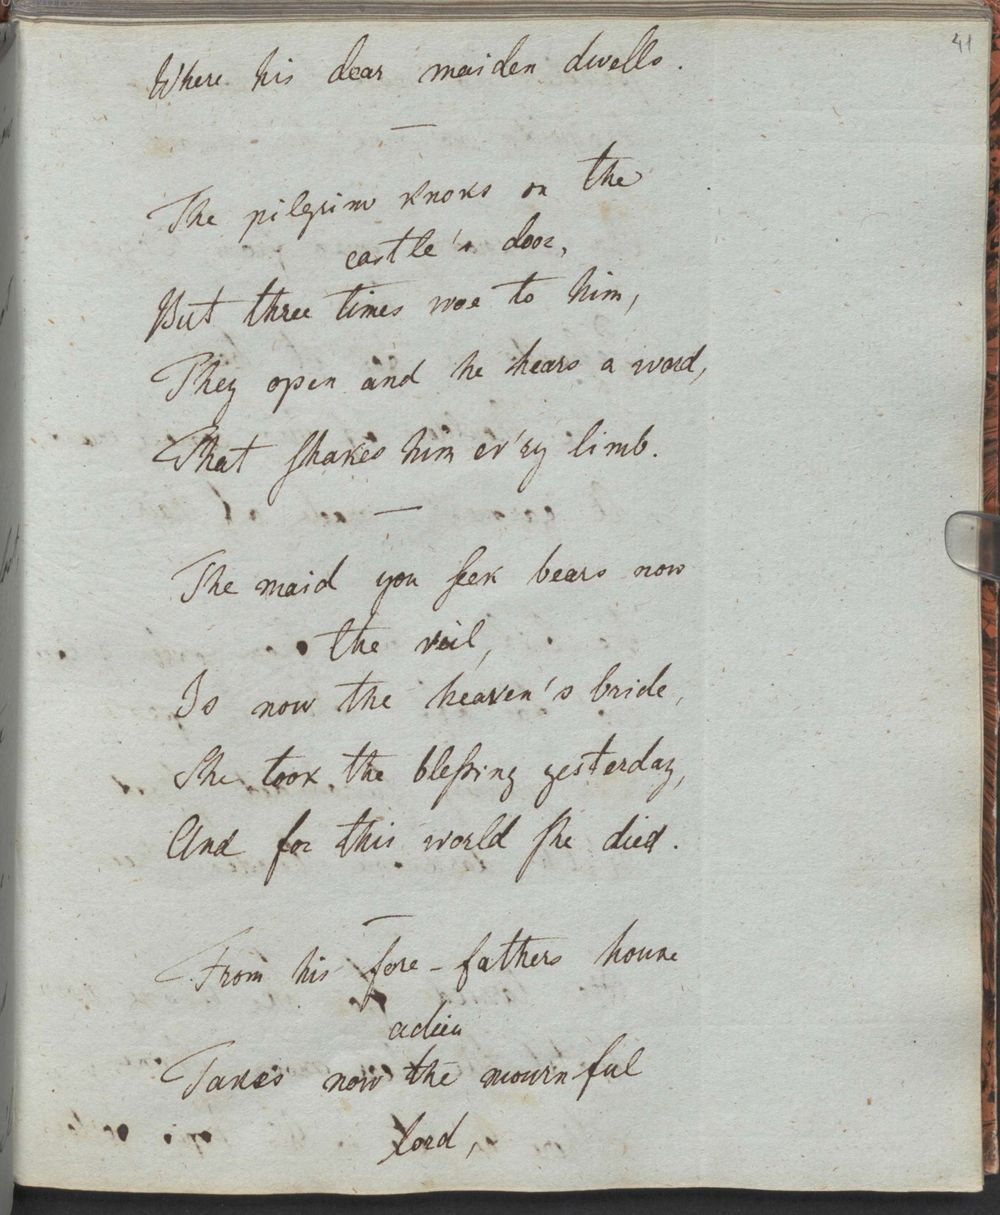 41
Where his dear maiden dwells.
The pilgrim knoks on the
castle's door,
But three times woe to him,
They open and he hears a word,
That shakes him ev'ry limb.
The maid you seek bears now
the veil,
Is now the heaven's bride,
She took the blessing yesterday,
And for this world she died.
From his fore-fathers house
adieu
Takes now the mournful
lord,